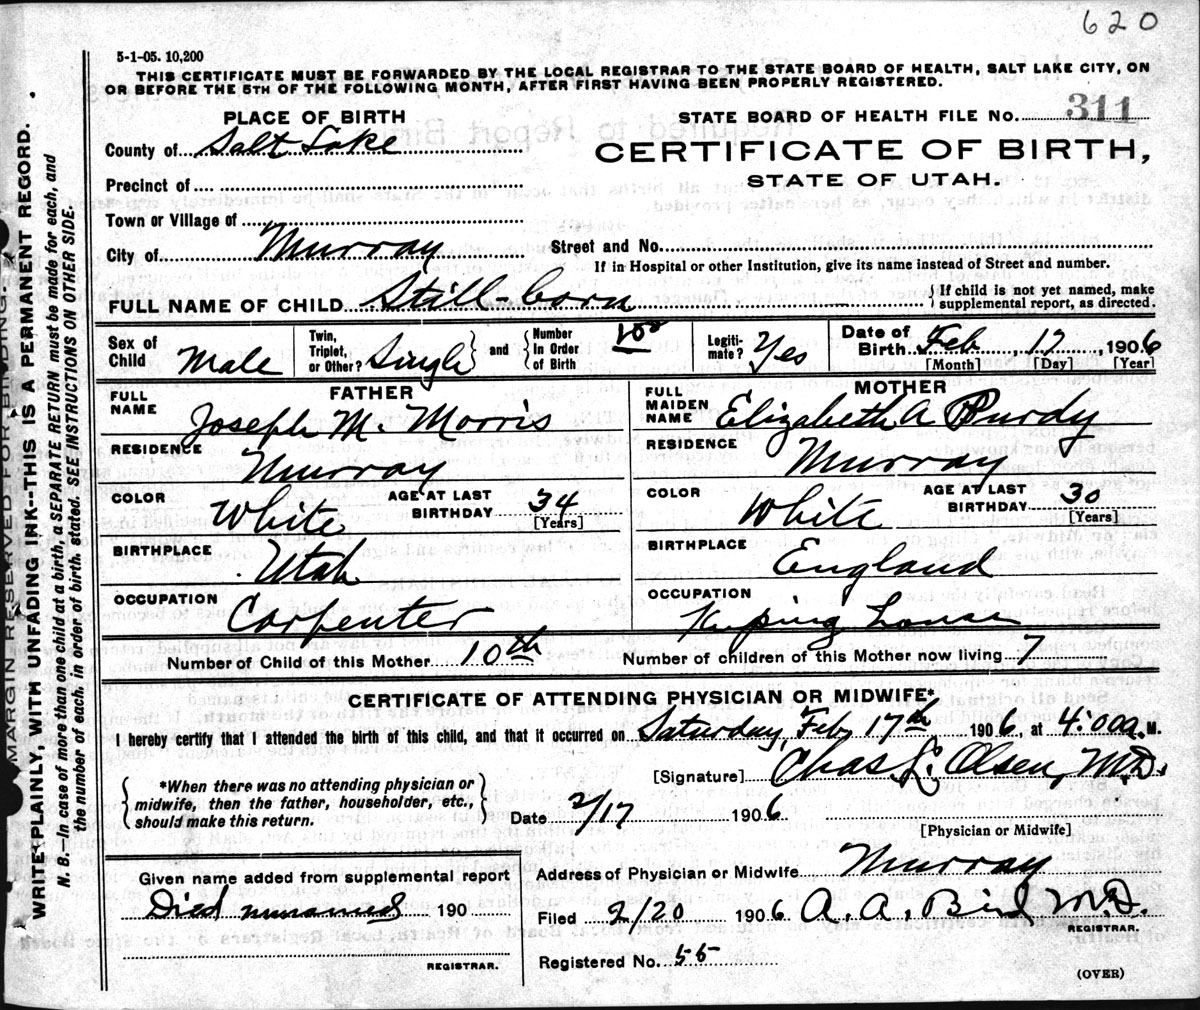 620
5-1-05. 10,200
THIS CERTIFICATE MUST BE FORWARDED BY THE LOCAL REGISTRAR TO THE STATE BOARD OF HEALTH, SALT LAKE CITY, ON
OR BEFORE THE 5TH OF THE FOLLOWING MONTH, AFTER FIRST HAVING BEEN PROPERLY REGISTERED.
PLACE OF BIRTH
STATE BOARD OF HEALTH FILE NO. 311
County of Salt Lake
CERTIFICATE OF BIRTH,
STATE OF UTAH.
Precinct of
Town or Village of
City of Murray
Street and No.
If in Hospital or other Institution, give its name instead of Street and number.
FULL NAME OF CHILD Still-born
{ If child is not yet named, make supplemental report, as directed.
Sex of Child Male
Twin, Triplet, or Other? Single and Number In Order of Birth
Legiti-mate? Yes
Date of Birth Feb, 17, 1906
[Month] [Day] [Year]
FATHER
FULL NAME Joseph M. Morris
MOTHER
FULL MAIDEN NAME Elizabeth A Purdy
RESIDENCE Murray
RESIDENCE Murray
COLOR White AGE AT LAST BIRTHDAY 34 [Years]
COLOR White AGE AT LAST BIRTHDAY 30 [Years]
BIRTHPLACE Utah
BIRTHPLACE England
OCCUPATION Carpenter
OCCUPATION Keeping house
Number of Child of this Mother 10th
Number of children of this Mother now living 7
CERTIFICATE OF ATTENDING PHYSICIAN OR MIDWIFE*
I hereby certify that I attended the birth of this child, and that it occurred on Saturday, Feb 17th 1906, at 4:00a.M.
*When there was no attending physician or
midwife, then the father, householder, etc.,
should make this return.
[Signature] Chas L. Olsen, M.D.
Date 2/17 1906
[Physician or Midwife]
Given name added from supplemental report
Died unnamed 190
REGISTRAR.
Address of Physician or Midwife Murray
Filed 2/20 1906 A. A. Bird M.D.
REGISTRAR.
Registered No. 55
(OVER)
MARGIN RESERVED FOR BINDING
WRITE PLAINLY, WITH UNFADING INK--THIS IS A PERMANENT RECORD.
N. B.—In case of more than one child at a birth, a SEPARATE RETURN must be made for each, and
the number of each, in order of birth, stated. SEE INSTRUCTIONS ON OTHER SIDE.